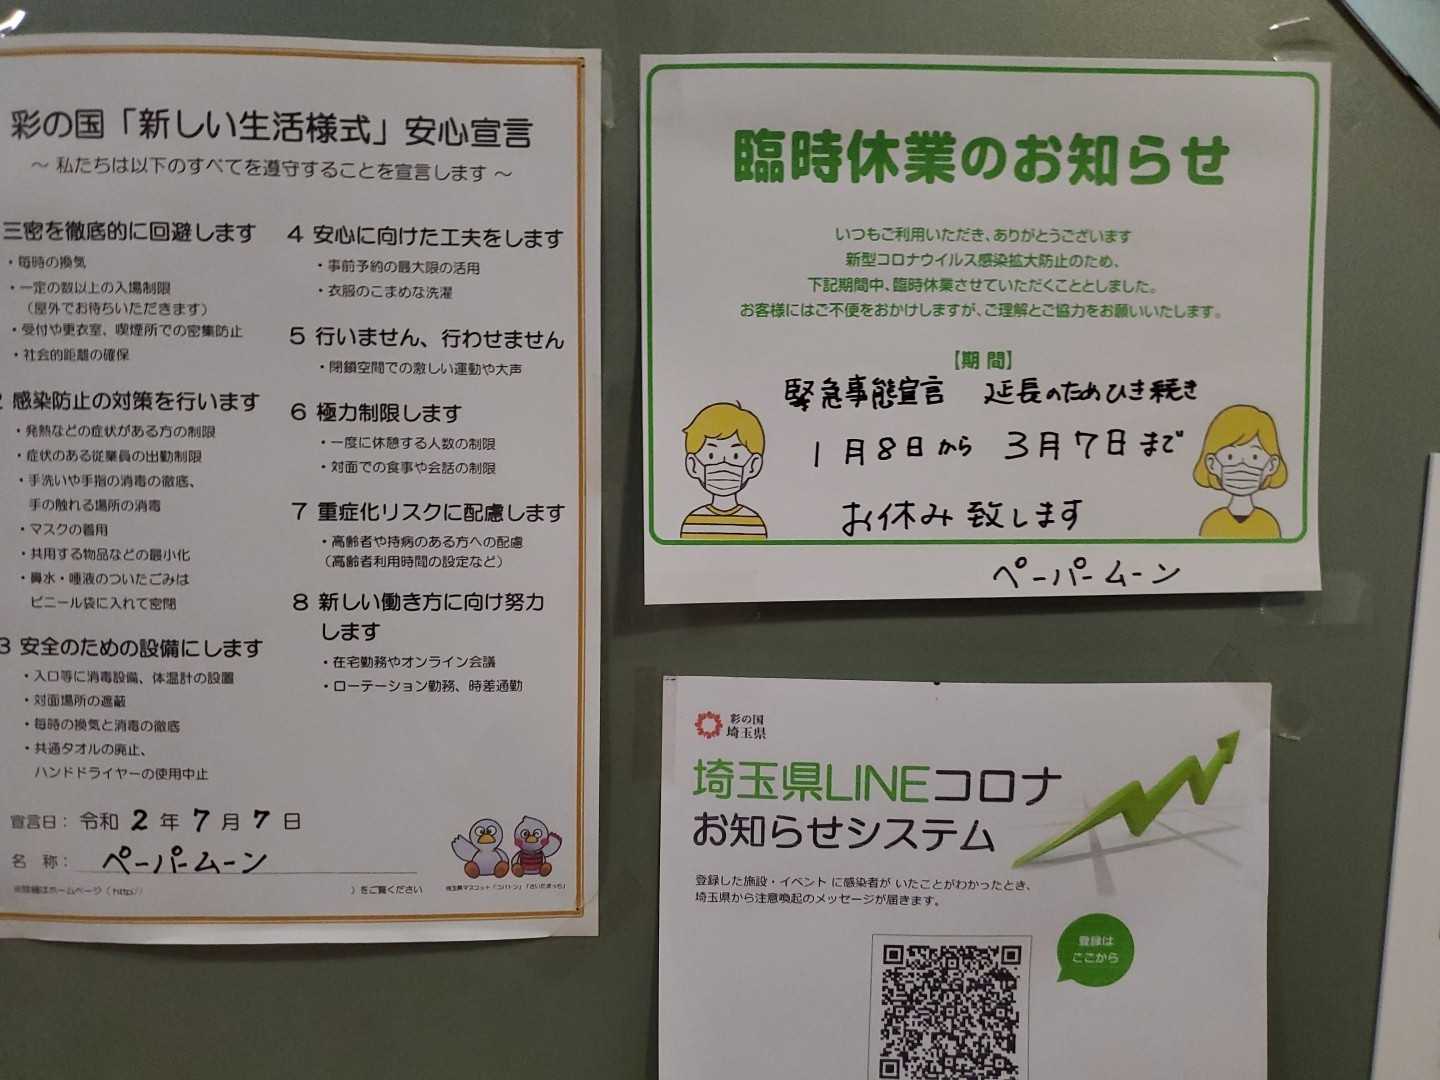 彩の国「新しい生活様式」安心宣言
～ 私たちは以下のすべてを遵守することを宣言します ～
三密を徹底的に回避します
・毎時の換気
・一定の数以上の入場制限
（屋外でお待ちいただきます）
・受付や更衣室、喫煙所での密集防止
・社会的距離の確保
2 感染防止の対策を行います
・発熱などの症状がある方の制限
・症状のある従業員の出勤制限
・手洗いや手指の消毒の徹底、
手の触れる場所の消毒
・マスクの着用
・共用する物品などの最小化
・鼻水・唾液のついたごみは
ビニール袋に入れて密閉
3 安全のための設備にします
・入口等に消毒設備、体温計の設置
・対面場所の遮蔽
・毎時の換気と消毒の徹底
・共通タオルの廃止、
ハンドドライヤーの使用中止
4 安心に向けた工夫をします
・事前予約の最大限の活用
・衣服のこまめな洗濯
5 行いません、行わせません
・閉鎖空間での激しい運動や大声
6 極力制限します
・一度に休憩する人数の制限
・対面での食事や会話の制限
7 重症化リスクに配慮します
・高齢者や持病のある方への配慮
（高齢者利用時間の設定など）
8 新しい働き方に向け努力
します
・在宅勤務やオンライン会議
・ローテーション勤務、時差通勤
宣言日： 令和 2 年 7 月 7 日
名 称： ペーパームーン
※詳細はホームページ（ http:// ）をご覧ください
埼玉県マスコット「コバトン」「さいたまっち」
臨時休業のお知らせ
いつもご利用いただき、ありがとうございます
新型コロナウイルス感染拡大防止のため、
下記期間中、臨時休業させていただくこととしました。
お客様にはご不便をおかけしますが、ご理解とご協力をお願いいたします。
【期 間】
緊急事態宣言 延長のためひき続き
1月8日から 3月7日まで
お休み致します
ペーパームーン
彩の国
埼玉県
埼玉県LINEコロナ
お知らせシステム
登録した施設・イベント に感染者が いたことがわかったとき、
埼玉県から注意喚起のメッセージが届きます。
登録は
ここから